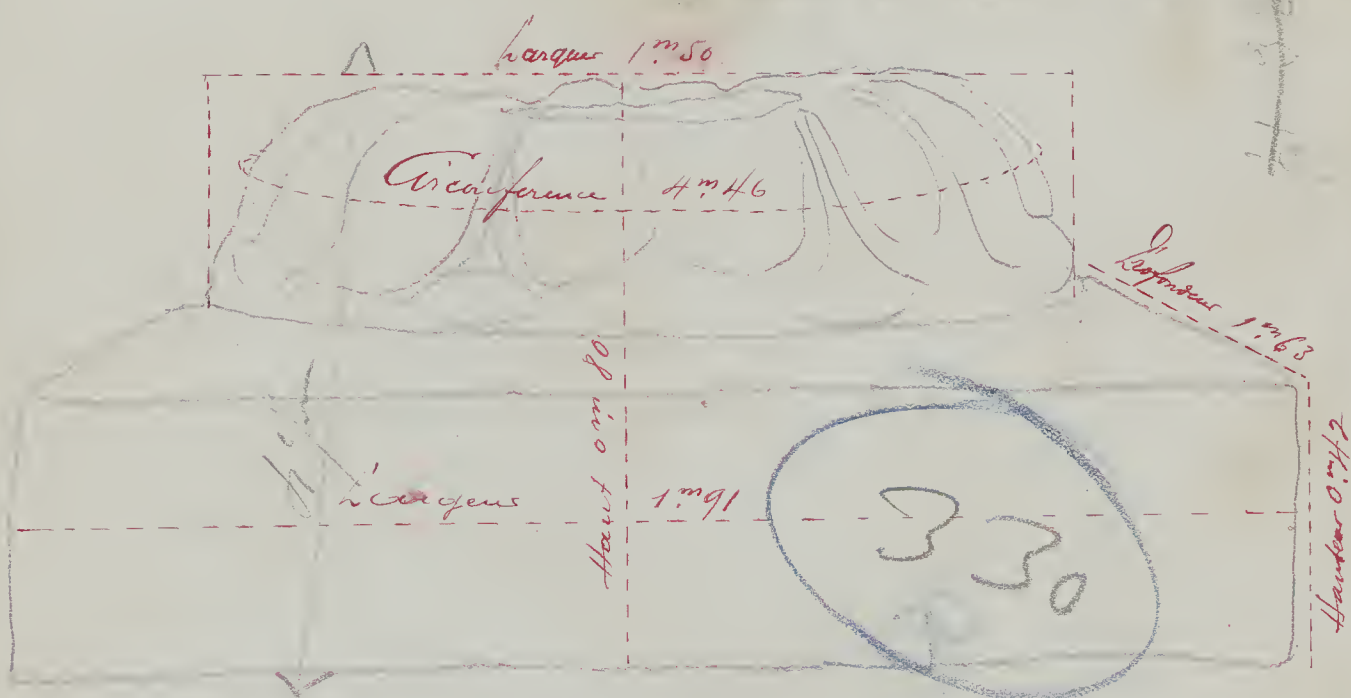 Largeur 1.m50
Circonference 4m46
Profondeur 1m63
Haut 0m80
Largeur 1.m91
Hauteur 0m42
330